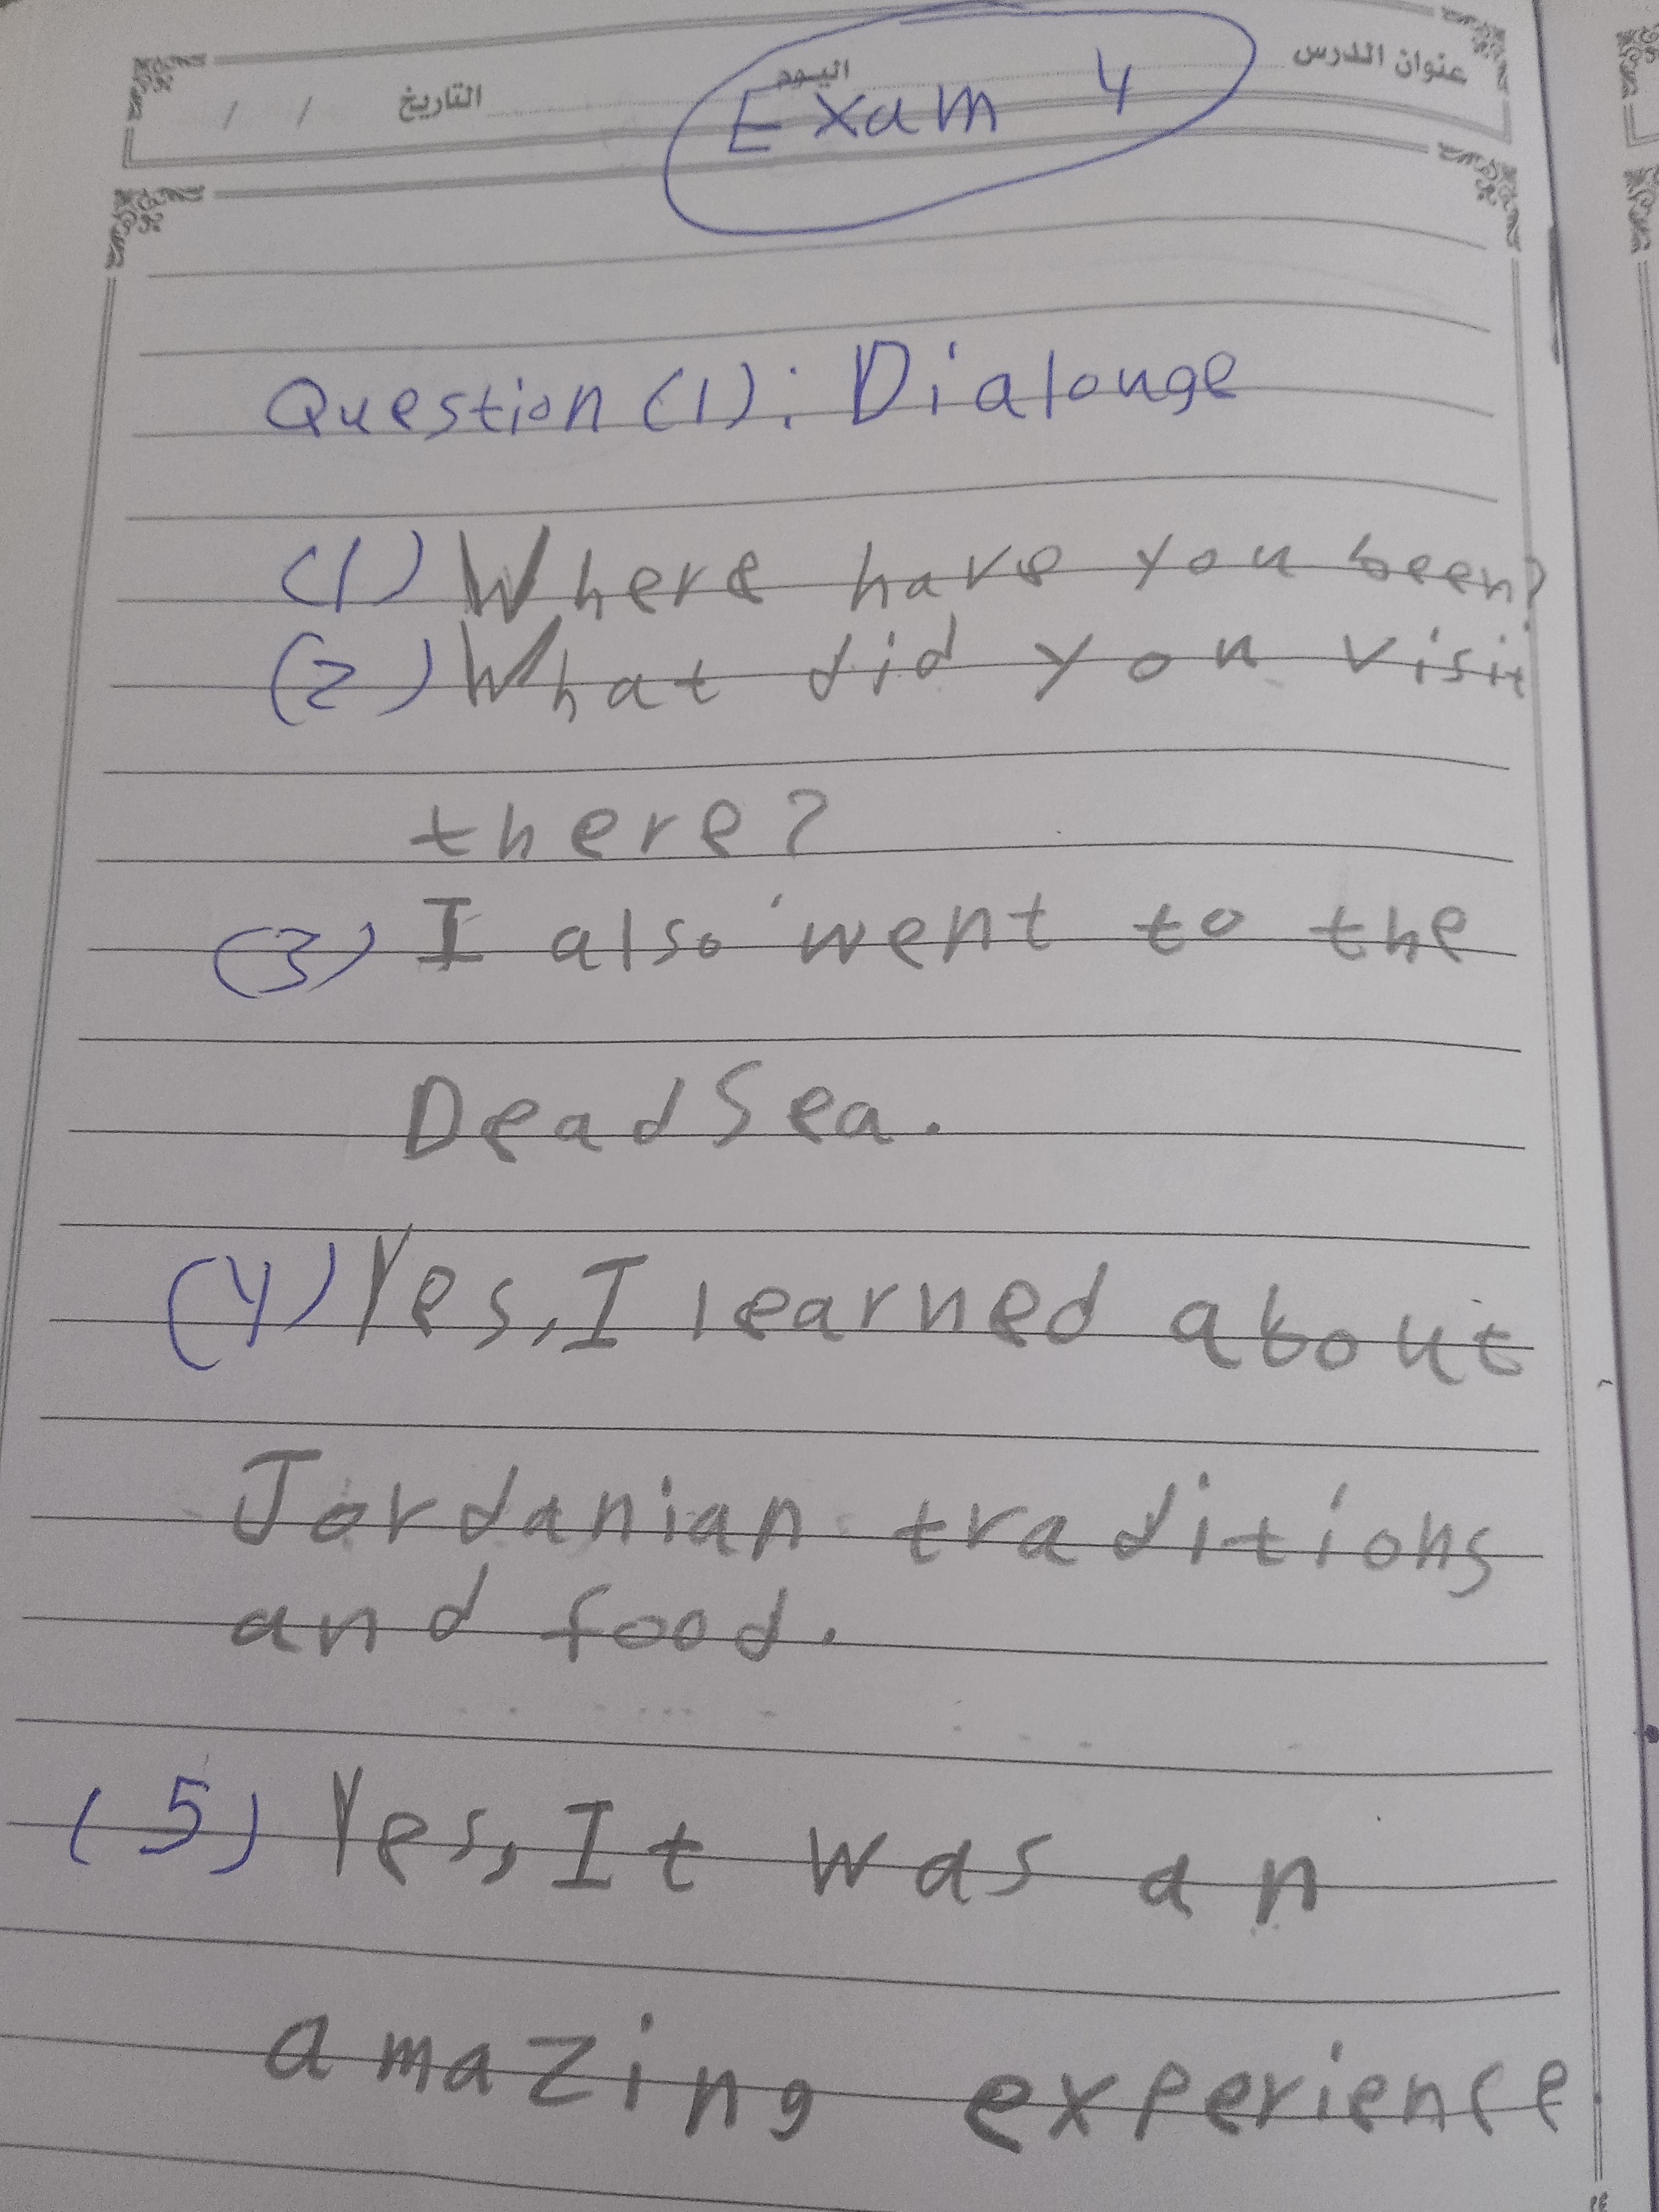 عنوان الدرس
اليوم
التاريخ / /
Exam 4
Question (1): Dialouge
(1) Where have you been?
(2) What did you visit
there?
(3) I also went to the
Dead Sea.
(4) Yes, I learned about
Jordanian traditions
and food.
(5) Yes, It was an
amazing experience.